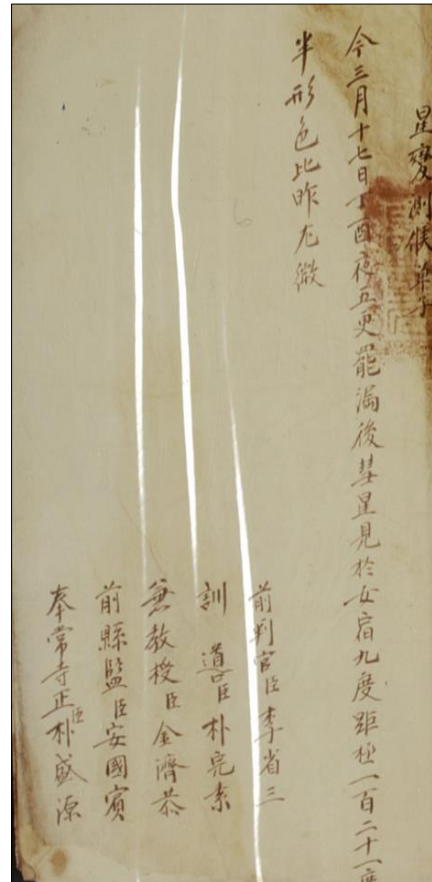 星變測候單子
今三月十七日丁酉夜五更罷漏後彗星見於女宿九度距極一百二十一度
半形色比昨尤微
前判官臣李省三
訓 導臣朴完素
兼教授臣金濟恭
前縣監臣安國賓
奉常寺正臣朴盛源